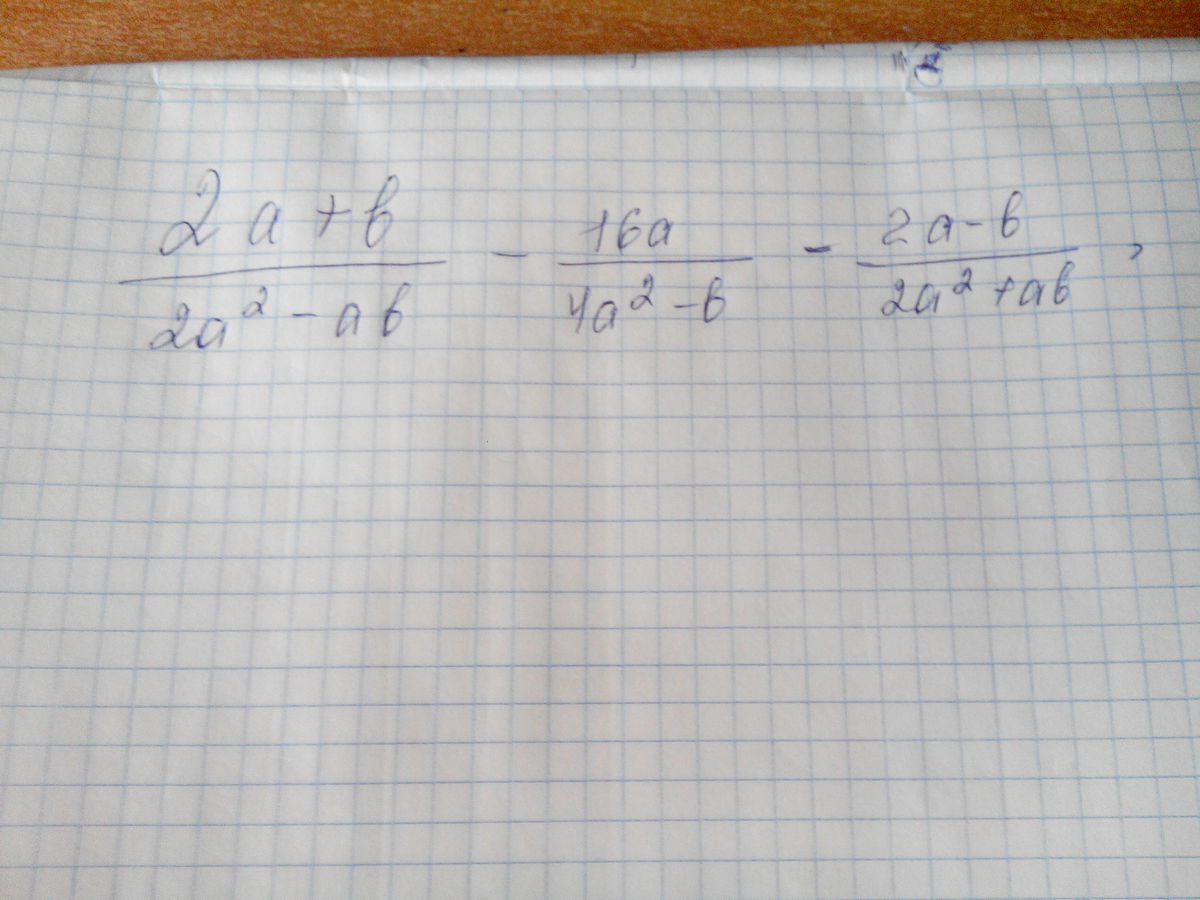 (2a + b)/(2a² - ab) - 16a/(4a² - b) - (2a - b)/(2a² + ab) ,